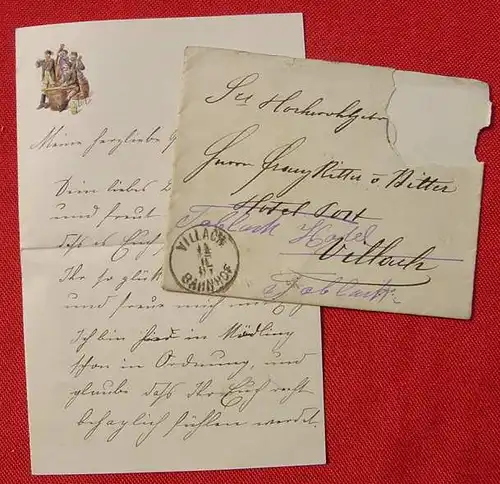 Meine herzliebe
Dein liebes
und freut
dass es Euch
Ihr so glück
und freue mich
Ich bin hier in Mödling
schon in Ordnung, und
glaube dass Ihr Euch recht
behaglich fühlen werdet.
Sr. Hochwohlgebor
Herrn Franz Ritter v. Ritter
Hôtel Post
Toblach Hotel
Villach
Toblach
VILLACH
BAHNHOF